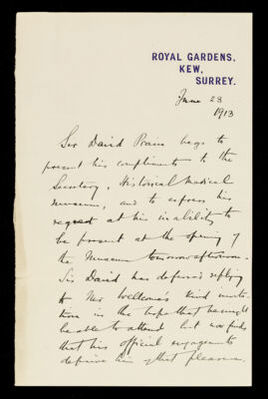 ROYAL GARDENS,
KEW,
SURREY.
June 23
1913
Sir David Prain begs to
present his compliments to the
Secretary, Historical Medical
Museum, and to express his
regret at his inability to
be present at the opening of
the Museum tomorrow afternoon.
Sir David has deferred replying
to Mr Wellcome's kind invita-
tion in the hope that he might
be able to attend but now finds
that his official engagements
deprive him of that pleasure.